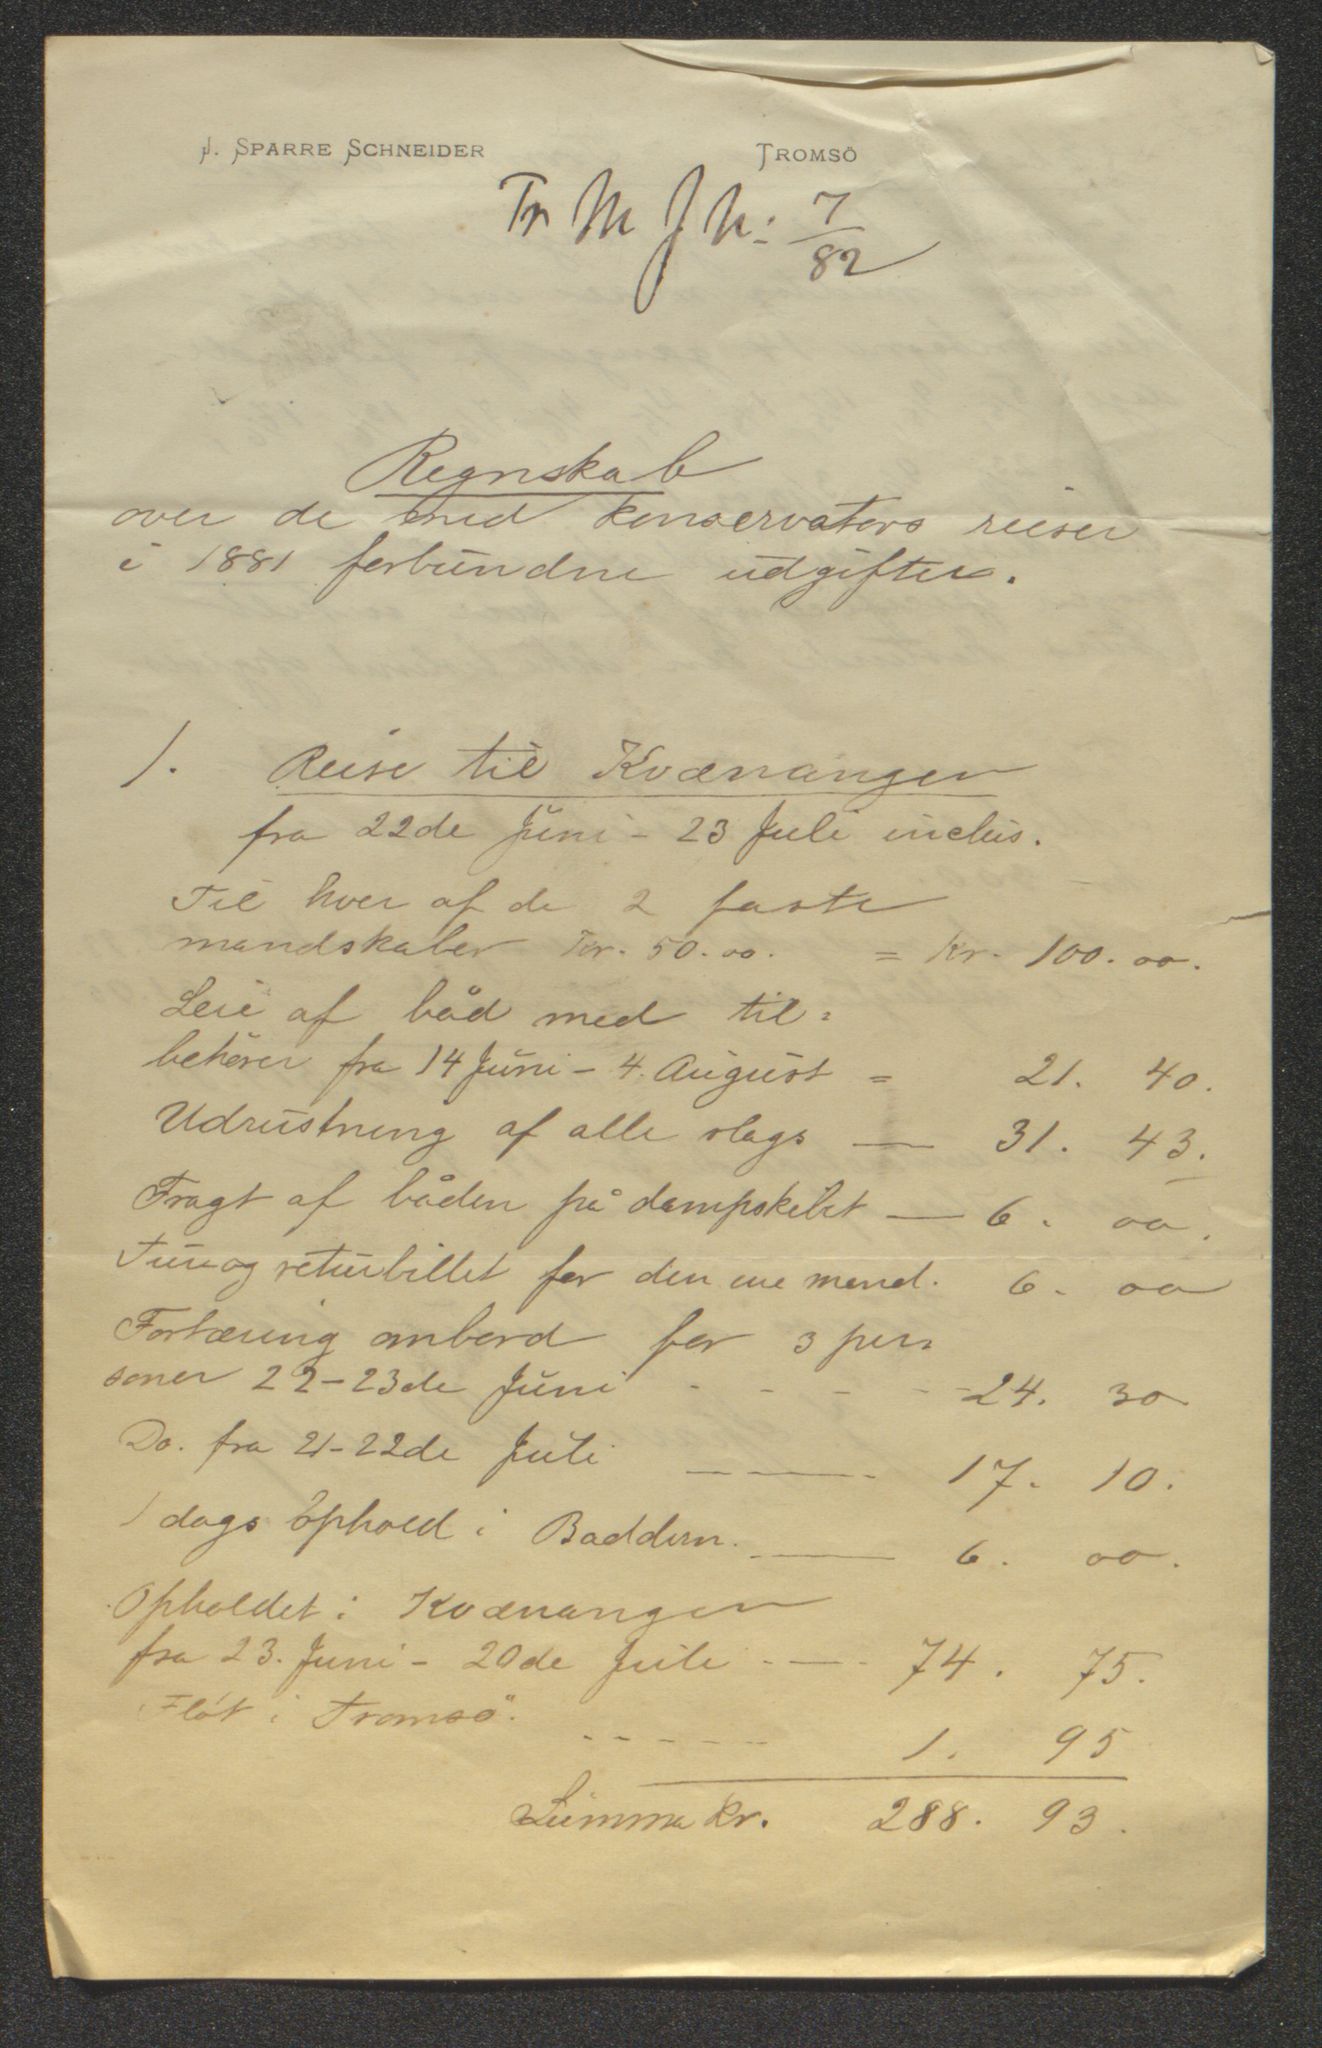 J. SPARRE SCHNEIDER TROMSÖ
Tr M J N: 7/82
Regnskab
over de med konservators reiser
i 1881 forbundne udgifter.
1. Reise til Kvænangen
fra 22de Juni - 23 Juli inclus.
Til hver af de 2 faste
mandskaber Kr. 50.00. = Kr. 100.00.
Leie af båd med til=
behører fra 14 Juni - 4. August = 21. 40.
Udrustning af alle slags — 31. 43.
Fragt af båden på dampskibet — 6. 00.
Tur og returbillet for den ene mand. 6. 00
Fortæring ombord for 3 per=
soner 22-23de Juni - - - - - 24. 30
Do. fra 21-22de Juli - — - 17. 10.
1 dags ophold i Baddern. — 6. 00.
Opholdet i Kvænangen
fra 23. Juni - 20de Juli - — - 74. 75.
Flöt i Tromsö. - - - - - 1. 95
Summa kr. 288. 93.